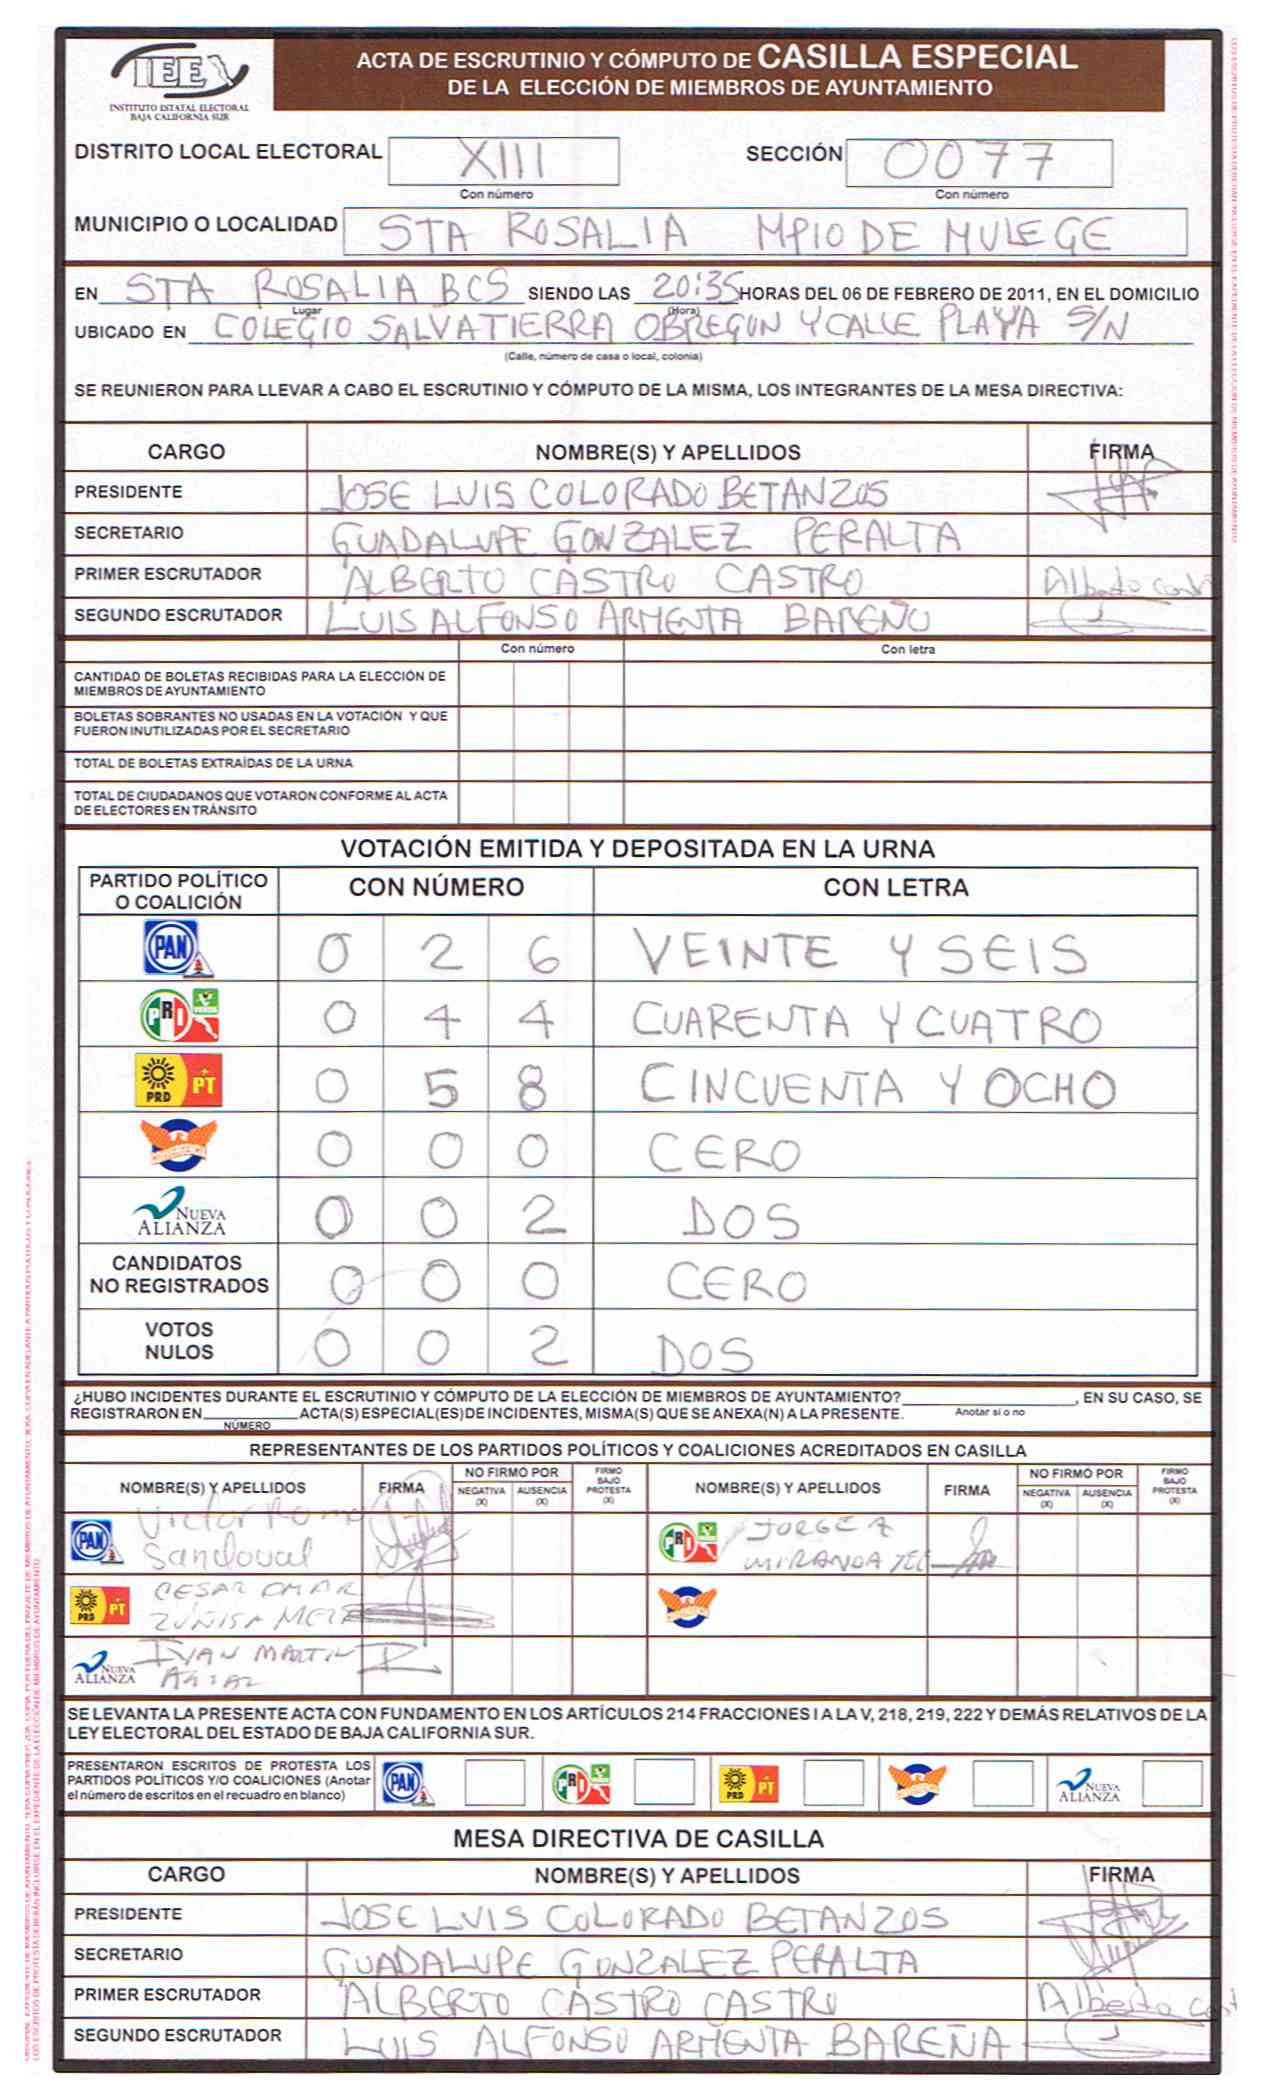 IEE
INSTITUTO ESTATAL ELECTORAL
BAJA CALIFORNIA SUR
ACTA DE ESCRUTINIO Y CÓMPUTO DE CASILLA ESPECIAL
DE LA ELECCIÓN DE MIEMBROS DE AYUNTAMIENTO
DISTRITO LOCAL ELECTORAL XIII SECCIÓN 0077
Con número Con número
MUNICIPIO O LOCALIDAD STA ROSALIA MPIO DE MULEGE
EN STA ROSALIA BCS SIENDO LAS 20:35 HORAS DEL 06 DE FEBRERO DE 2011, EN EL DOMICILIO
Lugar (Hora)
UBICADO EN COLEGIO SALVATIERRA OBREGON Y CALLE PLAYA S/N
(Calle, número de casa o local, colonia)
SE REUNIERON PARA LLEVAR A CABO EL ESCRUTINIO Y CÓMPUTO DE LA MISMA, LOS INTEGRANTES DE LA MESA DIRECTIVA:
CARGO NOMBRE(S) Y APELLIDOS FIRMA
PRESIDENTE JOSE LUIS COLORADO BETANZOS
SECRETARIO GUADALUPE GONZALEZ PERALTA
PRIMER ESCRUTADOR ALBERTO CASTRO CASTRO Alberto
SEGUNDO ESCRUTADOR LUIS ALFONSO ARMENTA BAREÑO
Con número Con letra
CANTIDAD DE BOLETAS RECIBIDAS PARA LA ELECCIÓN DE
MIEMBROS DE AYUNTAMIENTO
BOLETAS SOBRANTES NO USADAS EN LA VOTACIÓN Y QUE
FUERON INUTILIZADAS POR EL SECRETARIO
TOTAL DE BOLETAS EXTRAÍDAS DE LA URNA
TOTAL DE CIUDADANOS QUE VOTARON CONFORME AL ACTA
DE ELECTORES EN TRÁNSITO
VOTACIÓN EMITIDA Y DEPOSITADA EN LA URNA
PARTIDO POLÍTICO
O COALICIÓN CON NÚMERO CON LETRA
PAN 0 2 6 VEINTE Y SEIS
PRI VERDE 0 4 4 CUARENTA Y CUATRO
PRD PT 0 5 8 CINCUENTA Y OCHO
CONVERGENCIA 0 0 0 CERO
NUEVA ALIANZA 0 0 2 DOS
CANDIDATOS
NO REGISTRADOS 0 0 0 CERO
VOTOS
NULOS 0 0 2 DOS
¿HUBO INCIDENTES DURANTE EL ESCRUTINIO Y CÓMPUTO DE LA ELECCIÓN DE MIEMBROS DE AYUNTAMIENTO? , EN SU CASO, SE
REGISTRARON EN ACTA(S) ESPECIAL(ES) DE INCIDENTES, MISMA(S) QUE SE ANEXA(N) A LA PRESENTE. Anotar si o no
NÚMERO
REPRESENTANTES DE LOS PARTIDOS POLÍTICOS Y COALICIONES ACREDITADOS EN CASILLA
NOMBRE(S) Y APELLIDOS FIRMA NO FIRMÓ POR NEGATIVA (X) AUSENCIA (X) FIRMÓ BAJO PROTESTA (X) NOMBRE(S) Y APELLIDOS FIRMA NO FIRMÓ POR NEGATIVA (X) AUSENCIA (X) FIRMÓ BAJO PROTESTA (X)
PAN Victor Sandoval PRI JORGE A MIRANDA
PRD PT CESAR OMAR ZUÑIGA
NUEVA ALIANZA IVAN MARTIN
SE LEVANTA LA PRESENTE ACTA CON FUNDAMENTO EN LOS ARTÍCULOS 214 FRACCIONES I A LA V, 218, 219, 222 Y DEMÁS RELATIVOS DE LA
LEY ELECTORAL DEL ESTADO DE BAJA CALIFORNIA SUR.
PRESENTARON ESCRITOS DE PROTESTA LOS
PARTIDOS POLÍTICOS Y/O COALICIONES (Anotar
el número de escritos en el recuadro en blanco) PAN PRI PRD PT NUEVA ALIANZA
MESA DIRECTIVA DE CASILLA
CARGO NOMBRE(S) Y APELLIDOS FIRMA
PRESIDENTE JOSE LUIS COLORADO BETANZOS
SECRETARIO GUADALUPE GONZALEZ PERALTA
PRIMER ESCRUTADOR ALBERTO CASTRO CASTRO Alberto
SEGUNDO ESCRUTADOR LUIS ALFONSO ARMENTA BAREÑA